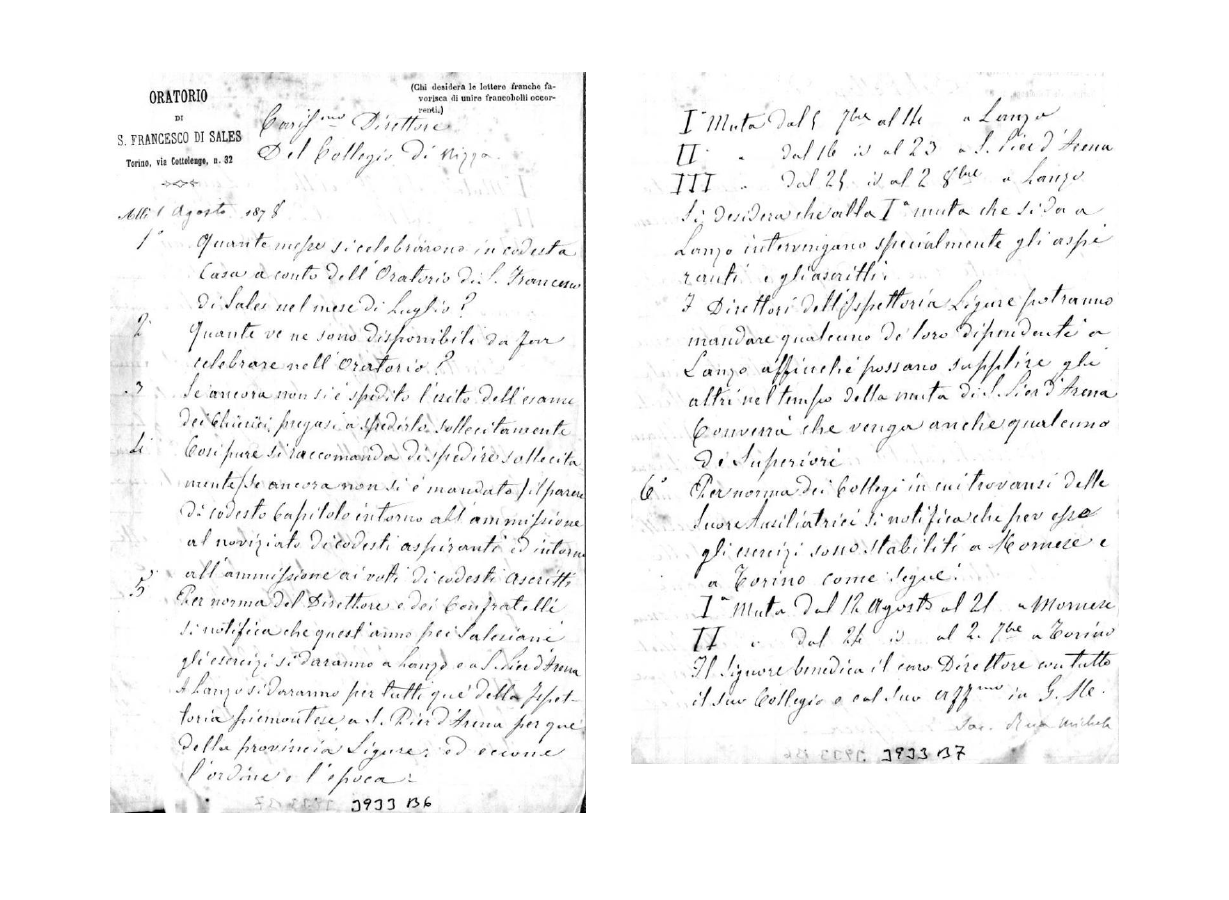 ORATORIO
DI
S. FRANCESCO DI SALES
Torino, via Cottolengo, n. 32
(Chi desidera le lettere franche fa-
vorisca di unire francobolli occor-
renti.)
Cariss.mo Direttore
Del Collegio di Nizza.
Agosto 1878
1° Quante messe si celebrarono in codesta
Casa a conto dell'Oratorio di S. Francesco
di Sales nel mese di Luglio?
2° Quante ve ne sono disponibili da far
celebrare nell'Oratorio?
3 Se ancora non si è spedito l'esito dell'esame
dei Chierici, pregasi a spedirlo sollecitamente
4° Così pure si raccomanda di spedire sollecita
mente (se ancora non si è mandato) il parere
di codesto Capitolo intorno all'ammissione
al noviziato di codesti aspiranti ed intorno
all'ammissione ai voti di codesti Ascritti
5° Per norma del Direttore e dei Confratelli
si notifica che quest'anno pei Salesiani
gli esercizi si daranno a Lanzo e a S. Pier d'Arena
A Lanzo si daranno per tutti que' della Ispet-
toria piemontese, a S. Pier d'Arena per que'
della provincia Ligure; ed eccone
l'ordine e l'epoca:
J9JJ B6
I° Muta dal 5 7bre al 14 a Lanzo
II " dal 16 is al 23 a S. Pier d'Arena
III " dal 25 is al 2 8bre a Lanzo
Si desidera che alla I° muta che si da a
Lanzo intervengano specialmente gli aspi
ranti e gli ascritti.
I Direttori dell'Ispettoria Ligure potranno
mandare qualcuno de' loro dipendenti a
Lanzo affinchè possano supplire gli
altri nel tempo della muta di S. Pier d'Arena
Converrà che venga anche qualcuno
di Superiori
6° Per norma dei Collegi in cui trovansi delle
Suore Ausiliatrici si notifica che per esse
gli esercizi sono stabiliti a Mornese e
a Torino come segue:
I° Muta dal 12 Agosto al 21 a Mornese
II " dal 24 is al 2. 7bre a Torino
Il Signore benedica il caro Direttore con tutto
il suo Collegio e col suo aff.mo in G. M.
Sac. Rua Michele
J9JJ B7